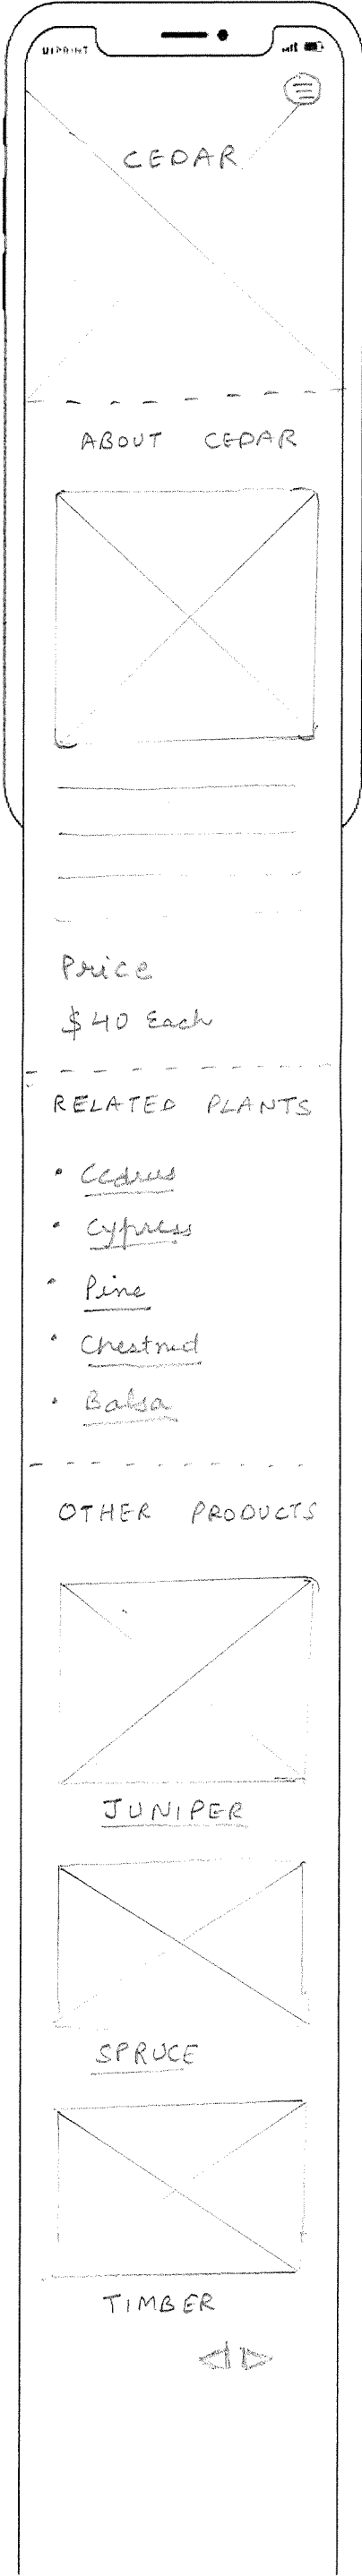 UIPRINT
CEDAR
ABOUT CEDAR
Price
$40 Each
RELATED PLANTS
• Cedrus
• Cypress
• Pine
• Chestnut
• Balsa
OTHER PRODUCTS
JUNIPER
SPRUCE
TIMBER